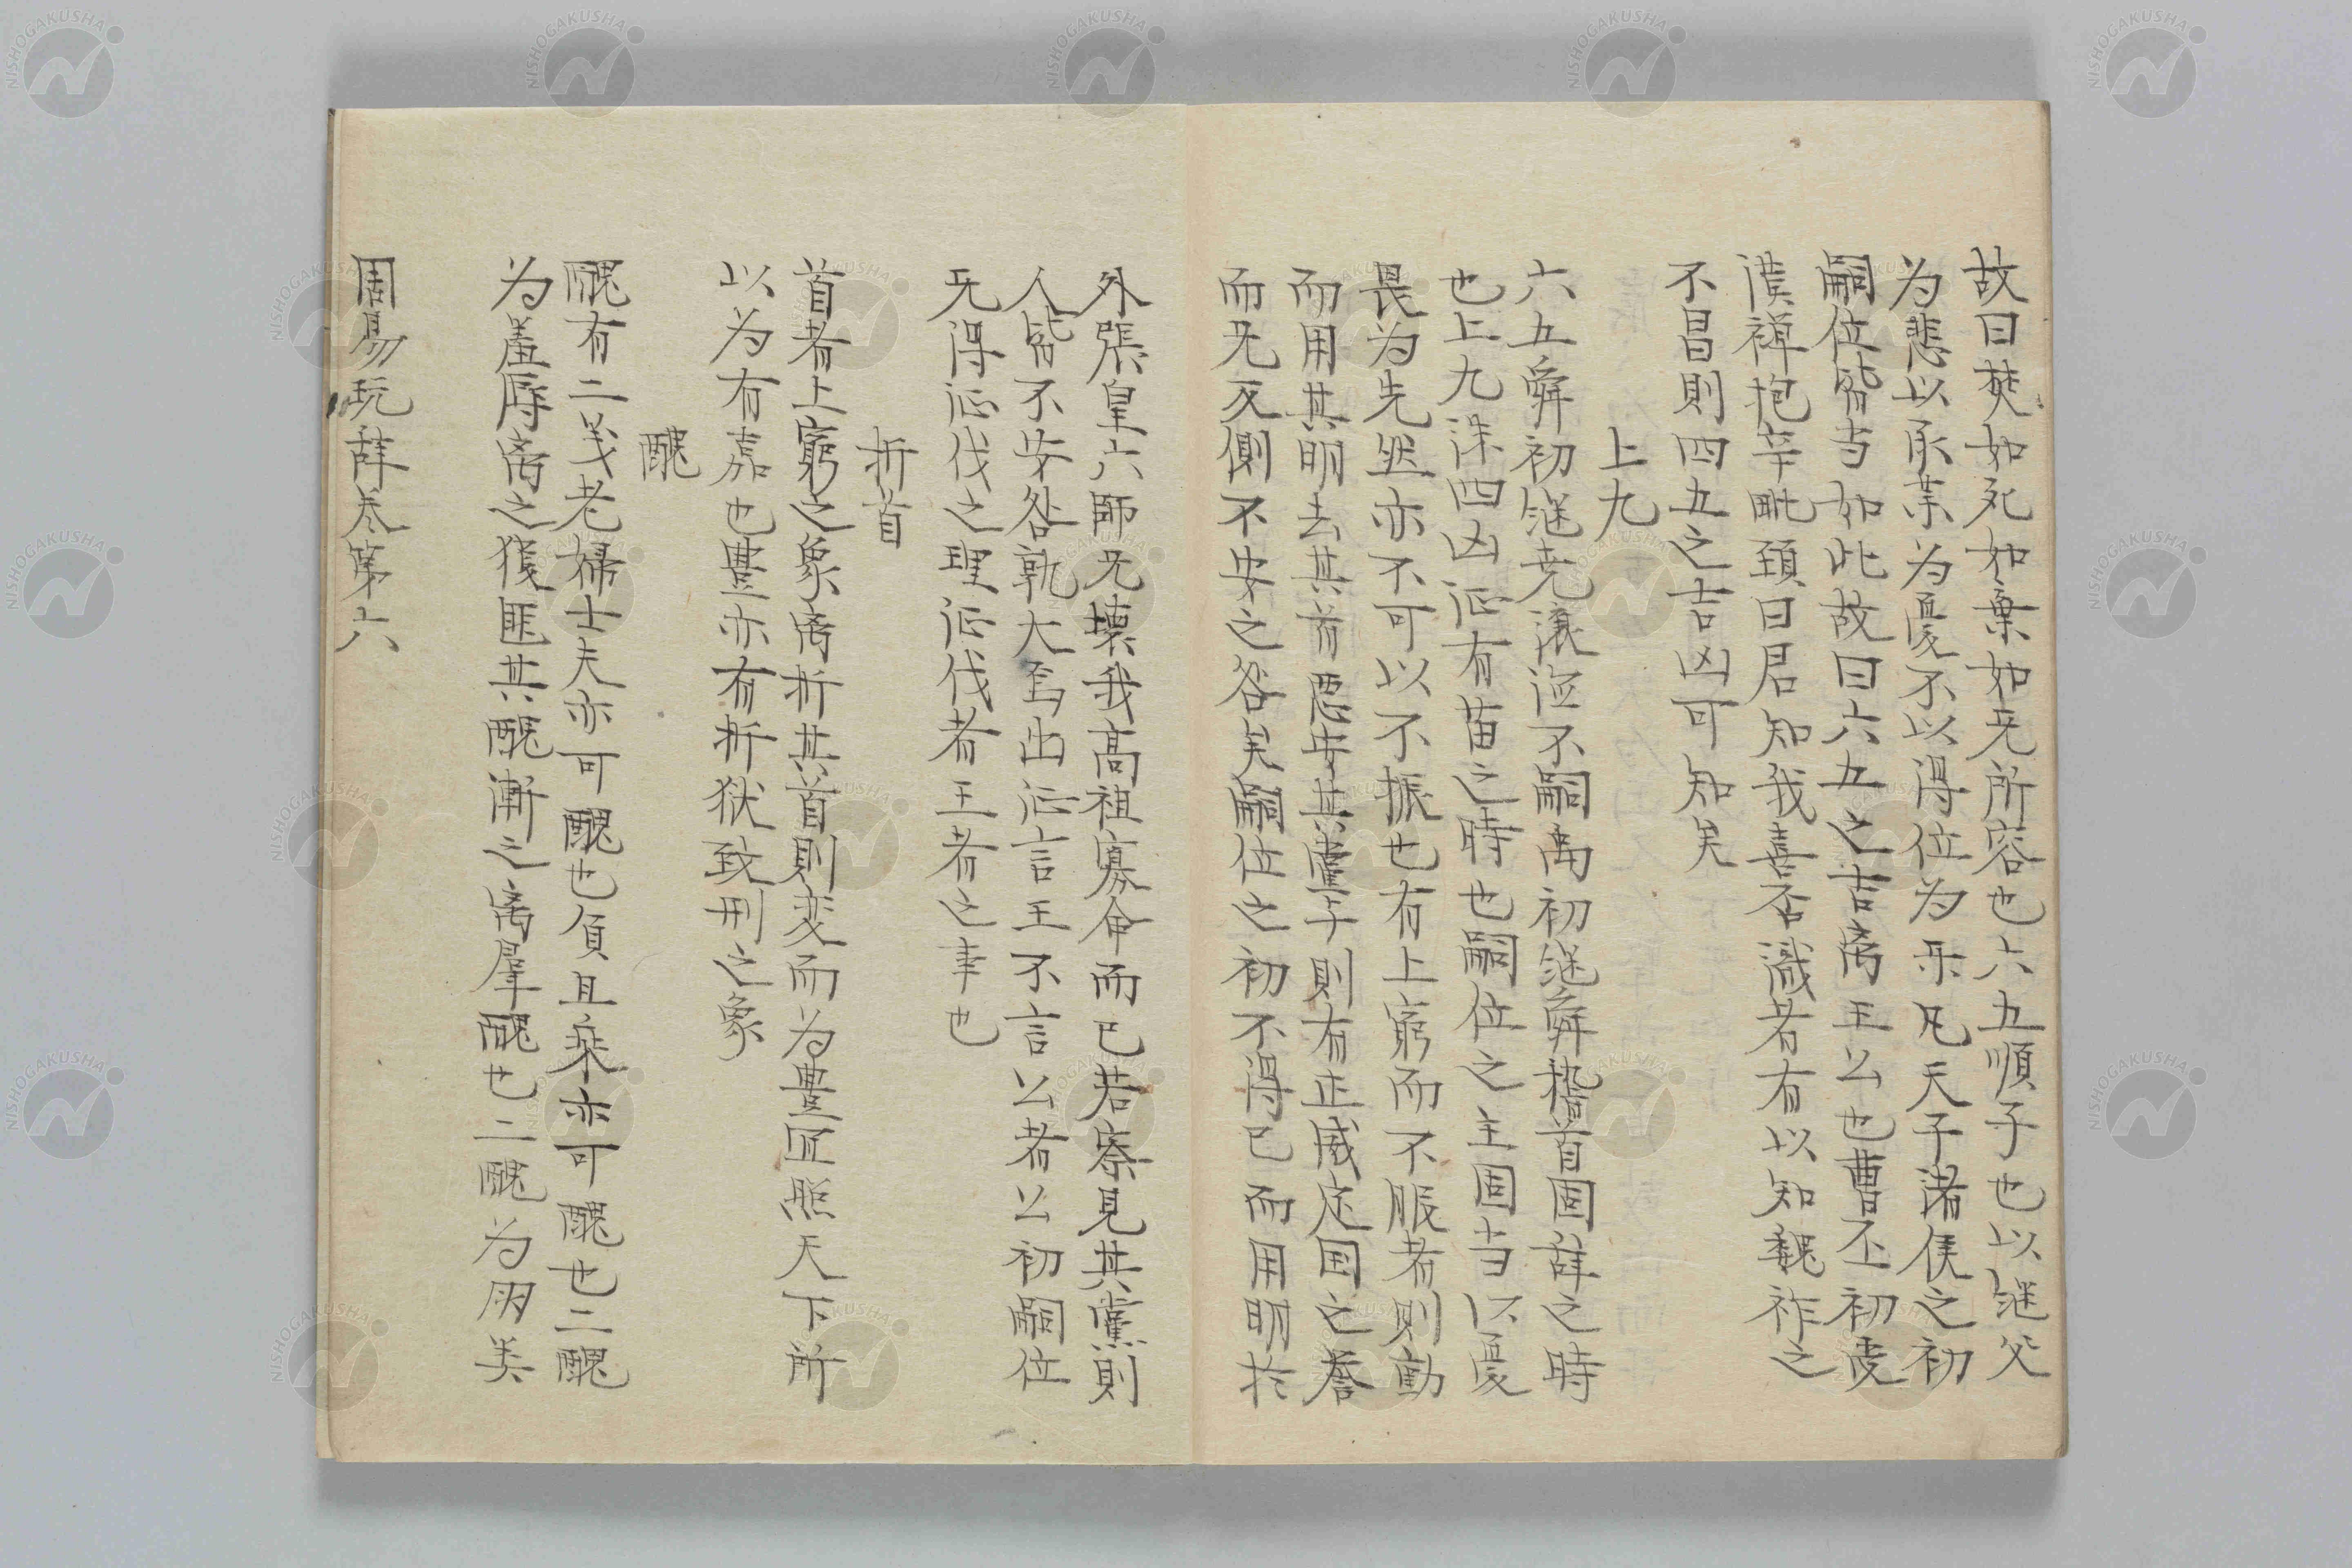 故曰焚如死如棄如无所容也六五順子也以継父
为悲以承業为憂不以得位为乐凡天子諸侯之初
嗣位皆当如此故曰六五之吉离王公也曹丕初受
漢禅抱辛毗頚曰君知我喜否識者有以知魏祚之
不昌則四五之吉凶可知矣
上九
六五舜初継尭譲位不嗣禹初継舜稽首固辞之時
也上九誅四凶征有苗之時也嗣位之主固当以憂
畏为先然亦不可以不振也有上窮而不服者則勤
而用其明去其首惡安其黨与則有正威定国之誉
而无反側不安之咎矣嗣位之初不得已而用明於
外張皇六師无壊我高祖寡命而已若察見其黨則
人皆不安咎孰大焉出征言王不言公者公初嗣位
无得征伐之理征伐者王者之事也
折首
首者上窮之象离折其首則变而为豊宜照天下所
以为有嘉也豊亦有折獄致刑之象
醜
醜有二义老婦士夫亦可醜也負且乘亦可醜也二醜
为羞辱离之獲匪其醜漸之离羣醜也二醜为朋类
周易玩辞巻第六
NISHOGAKUSHA